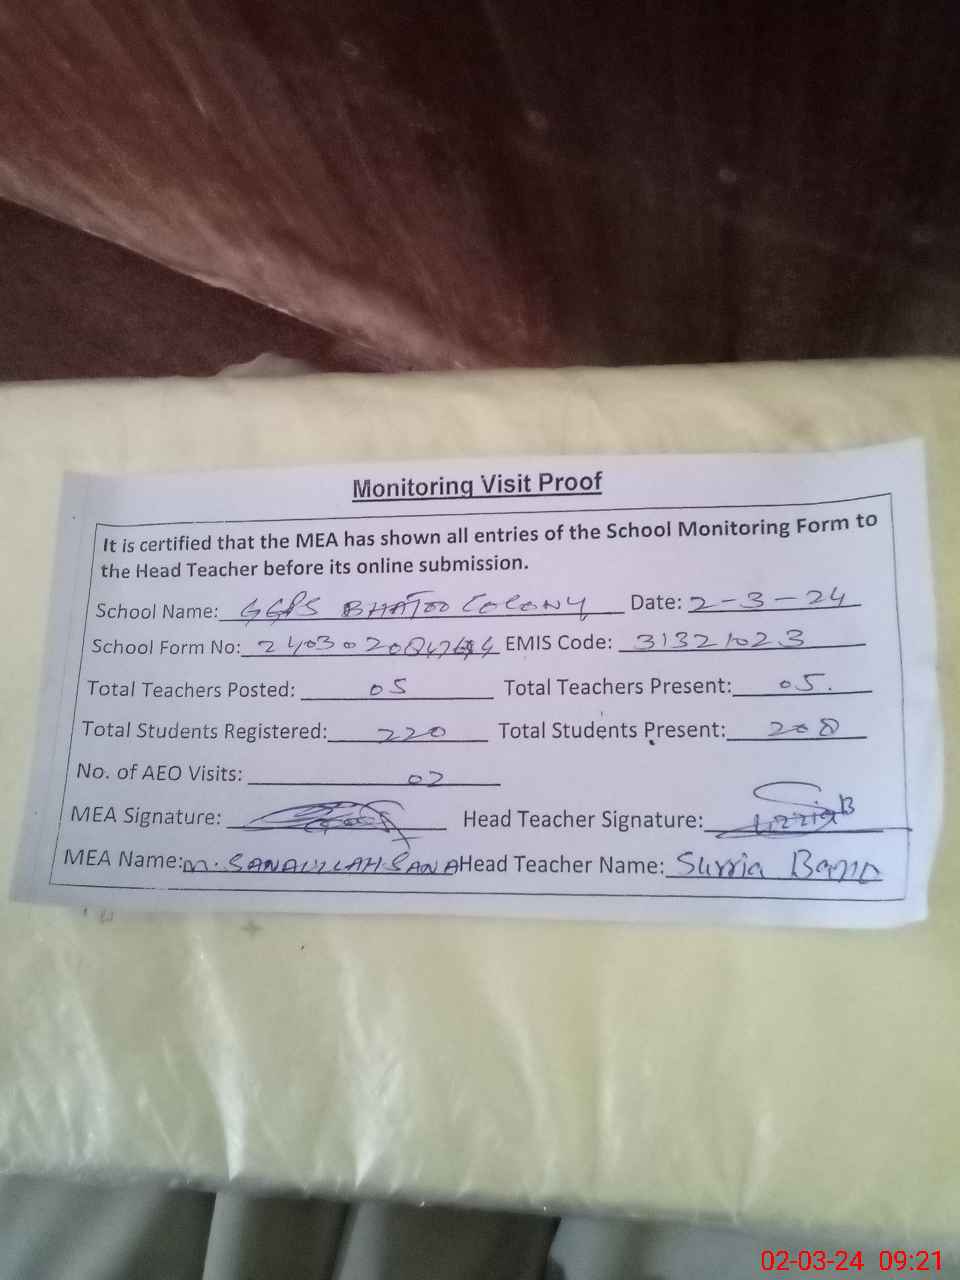 Monitoring Visit Proof
It is certified that the MEA has shown all entries of the School Monitoring Form to
the Head Teacher before its online submission.
School Name: GGPS BHATOO COLONY Date: 2-3-24
School Form No: EMIS Code: 31321023
Total Teachers Posted: 05 Total Teachers Present: 05.
Total Students Registered: 220 Total Students Present: 208
No. of AEO Visits: 02
MEA Signature: Head Teacher Signature:
MEA Name: M. SANAULLAH SANA Head Teacher Name: Surria Bano
02-03-24 09:21